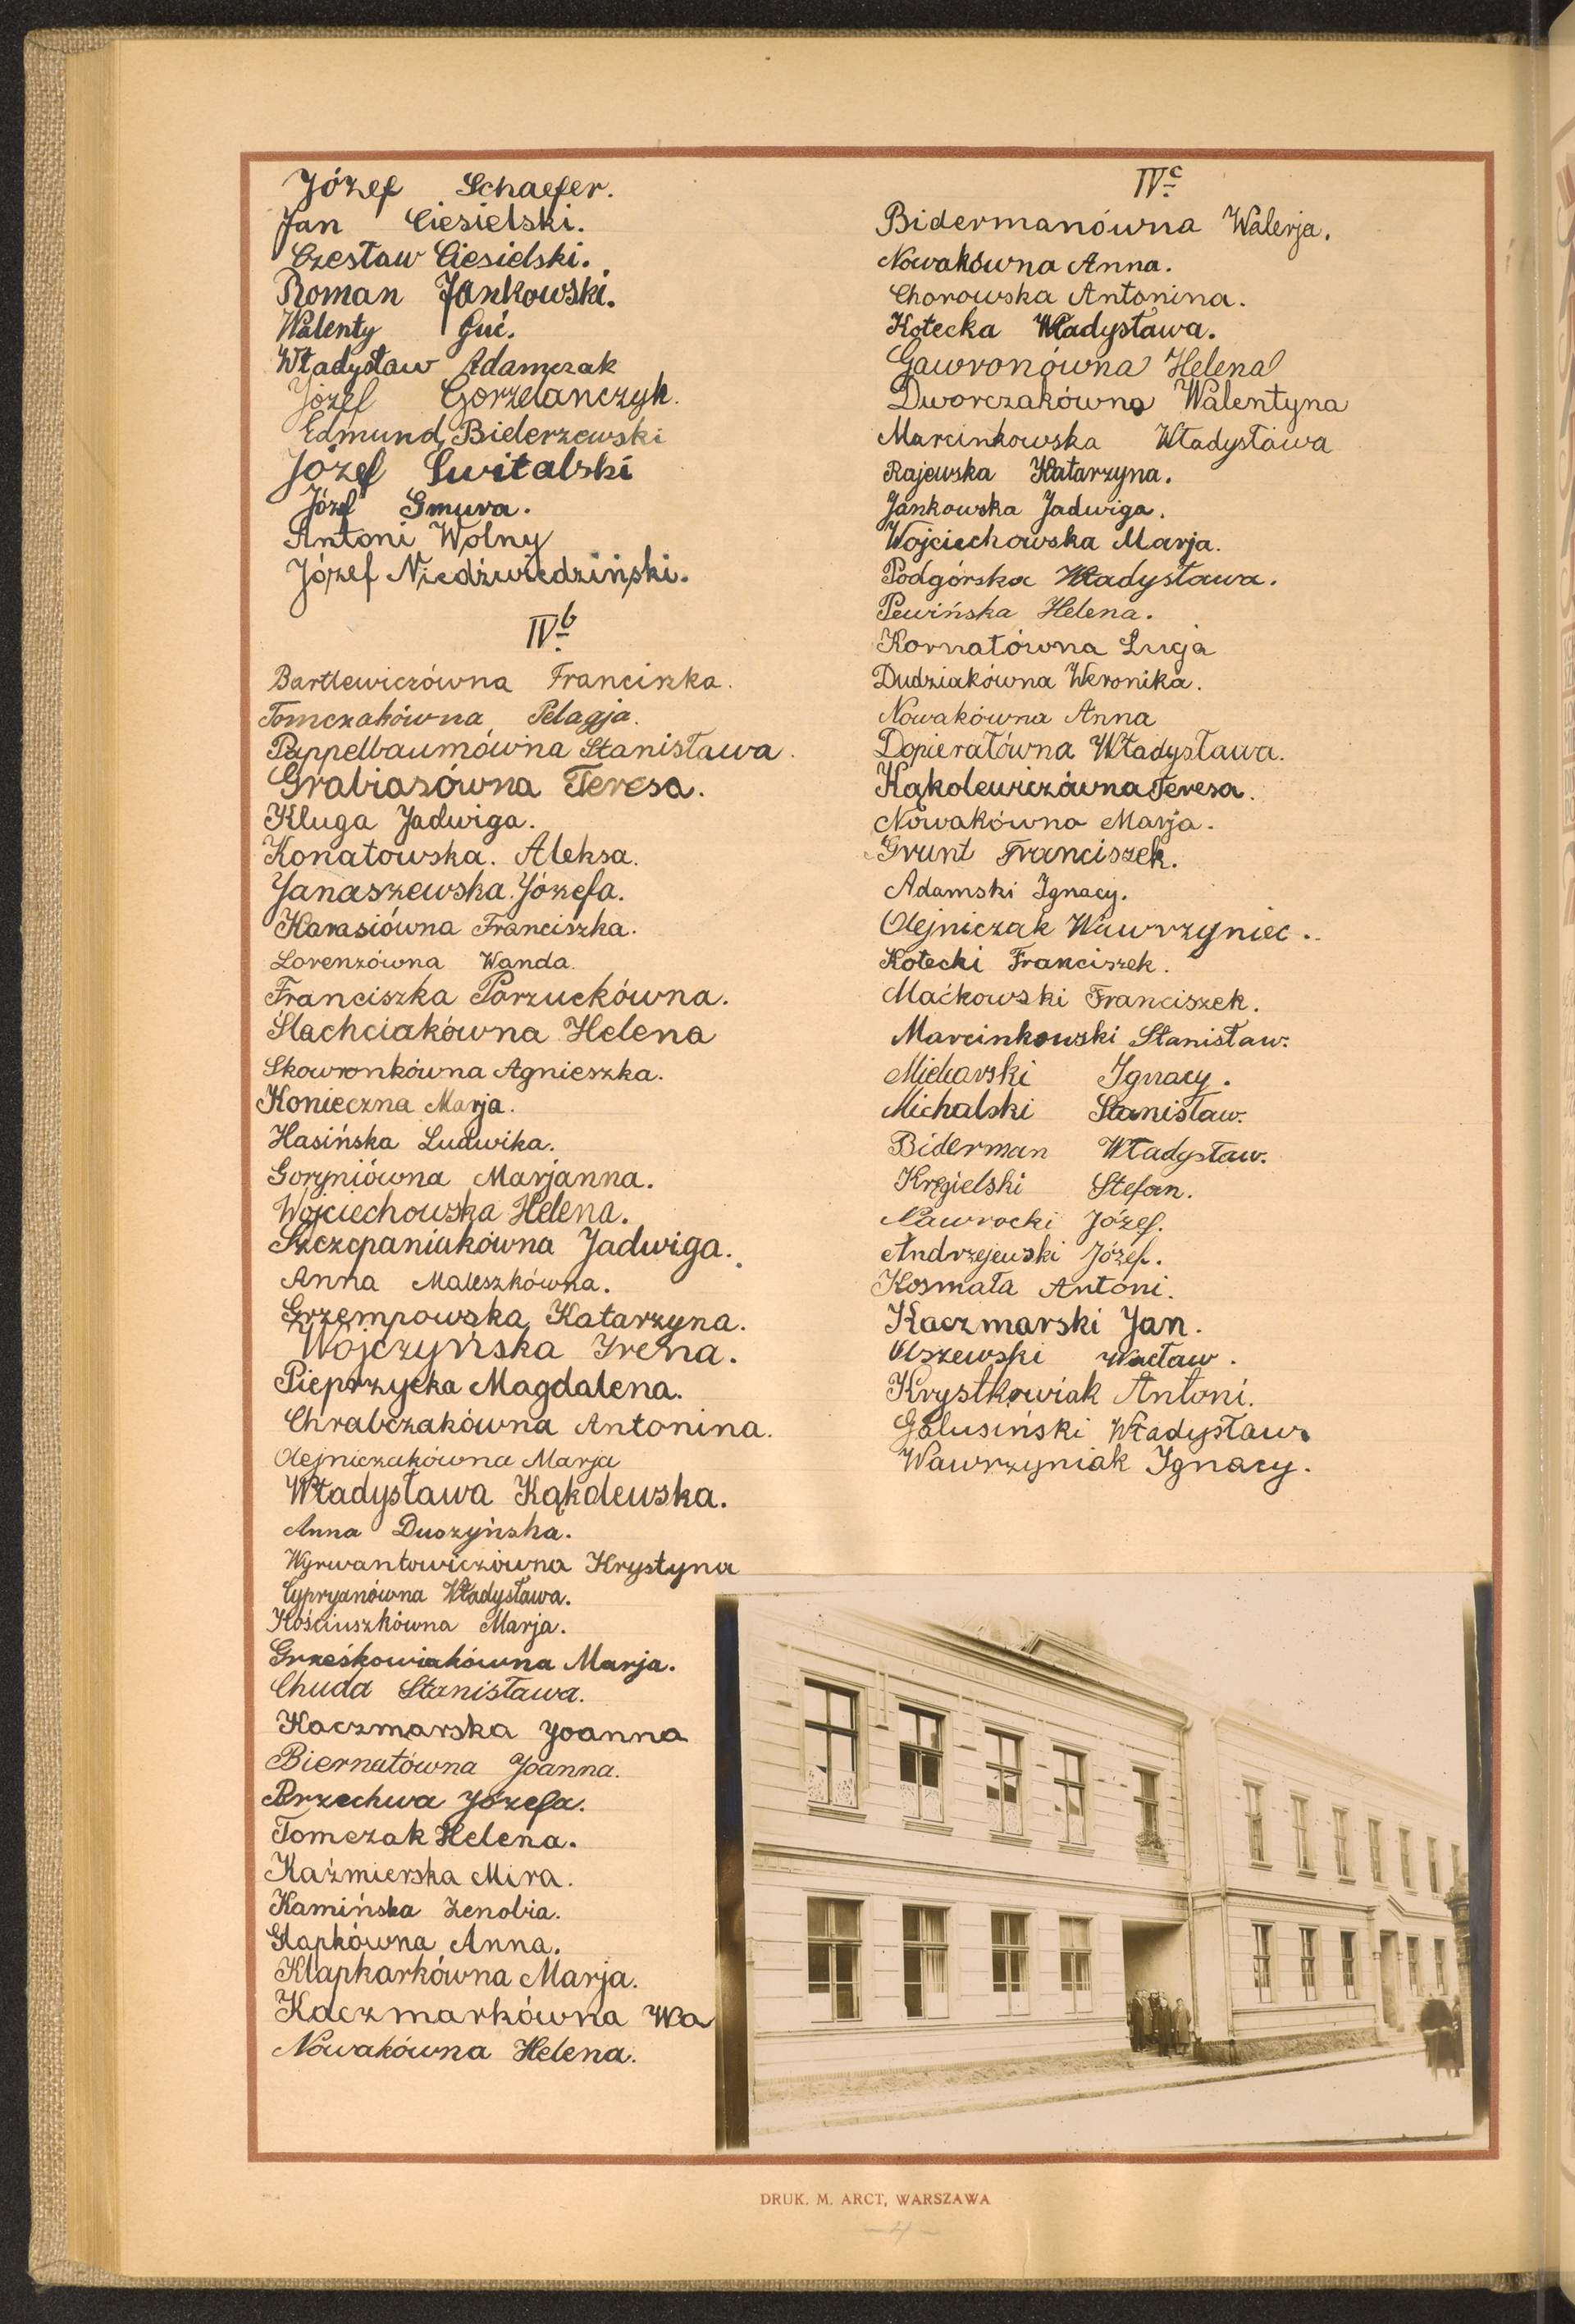 Józef Schaefer.
Jan Ciesielski.
Czesław Ciesielski.
Roman Jankowski.
Walenty Guć.
Władysław Adamczak
Józef Gorzelańczyk.
Edmund Bielerzewski
Józef Świtalski
Józef Gmura.
Antoni Wolny
Józef Niedźwiedziński.
IVb
Bartlewiczówna Franciszka.
Tomczakówna Pelagja.
Pappelbaumówna Stanisława.
Grabiasówna Teresa.
Kluga Jadwiga.
Konatowska. Aleksa.
Janaszewska Józefa.
Karasiówna Franciszka.
Lorenzówna Wanda.
Franciszka Porzuckówna.
Slachciakówna Helena
Skowronkówna Agnieszka.
Konieczna Marja.
Hasińska Ludwika.
Goryniówna Marjanna.
Wojciechowska Helena.
Szczepaniakówna Jadwiga.
Anna Maleszkówna.
Grzempowska Katarzyna.
Wojczyńska Irena.
Pieprzycka Magdalena.
Chrabczakówna Antonina.
Olejniczakówna Marja
Władysława Kąkolewska.
Anna Duszyńska.
Wyrwantowiczówna Krystyna
Cyprjanówna Władysława.
Kościuszkówna Marja.
Grześkowiakówna Marja.
Chuda Stanisława.
Kaczmarska Joanna
Biernatówna Joanna.
Przechwa Józefa.
Tomczak Helena.
Kaźmierska Mira.
Kamińska Zenobia.
Głapkówna Anna.
Klapkarkówna Marja.
Kaczmarkówna Wa
Nowakówna Helena.
IVc
Bidermanówna Walerja.
Nowakówna Anna.
Chorowska Antonina.
Kotecka Władysława.
Gawronówna Helena
Dworczakówna Walentyna
Marcinkowska Władysława
Rajewska Katarzyna.
Jankowska Jadwiga.
Wojciechowska Marja.
Podgórska Władysława.
Pewińska Helena.
Kornatówna Łucja
Dudziakówna Weronika.
Nowakówna Anna
Dopierałówna Władysława.
Kąkolewiczówna Teresa.
Nowakówna Marja.
Grunt Franciszek.
Adamski Ignacy.
Olejniczak Wawrzyniec.
Kotecki Franciszek.
Maćkowski Franciszek.
Marcinkowski Stanisław.
Micharski Ignacy.
Michalski Stanisław.
Biderman Władysław.
Kręgielski Stefan.
Nawrocki Józef.
Andrzejewski Józef.
Kosmała Antoni.
Kaczmarski Jan.
Olszewski Wacław.
Krystkowiak Antoni.
Galusiński Władysław.
Wawrzyniak Ignacy.
DRUK. M. ARCT, WARSZAWA
- 4 -